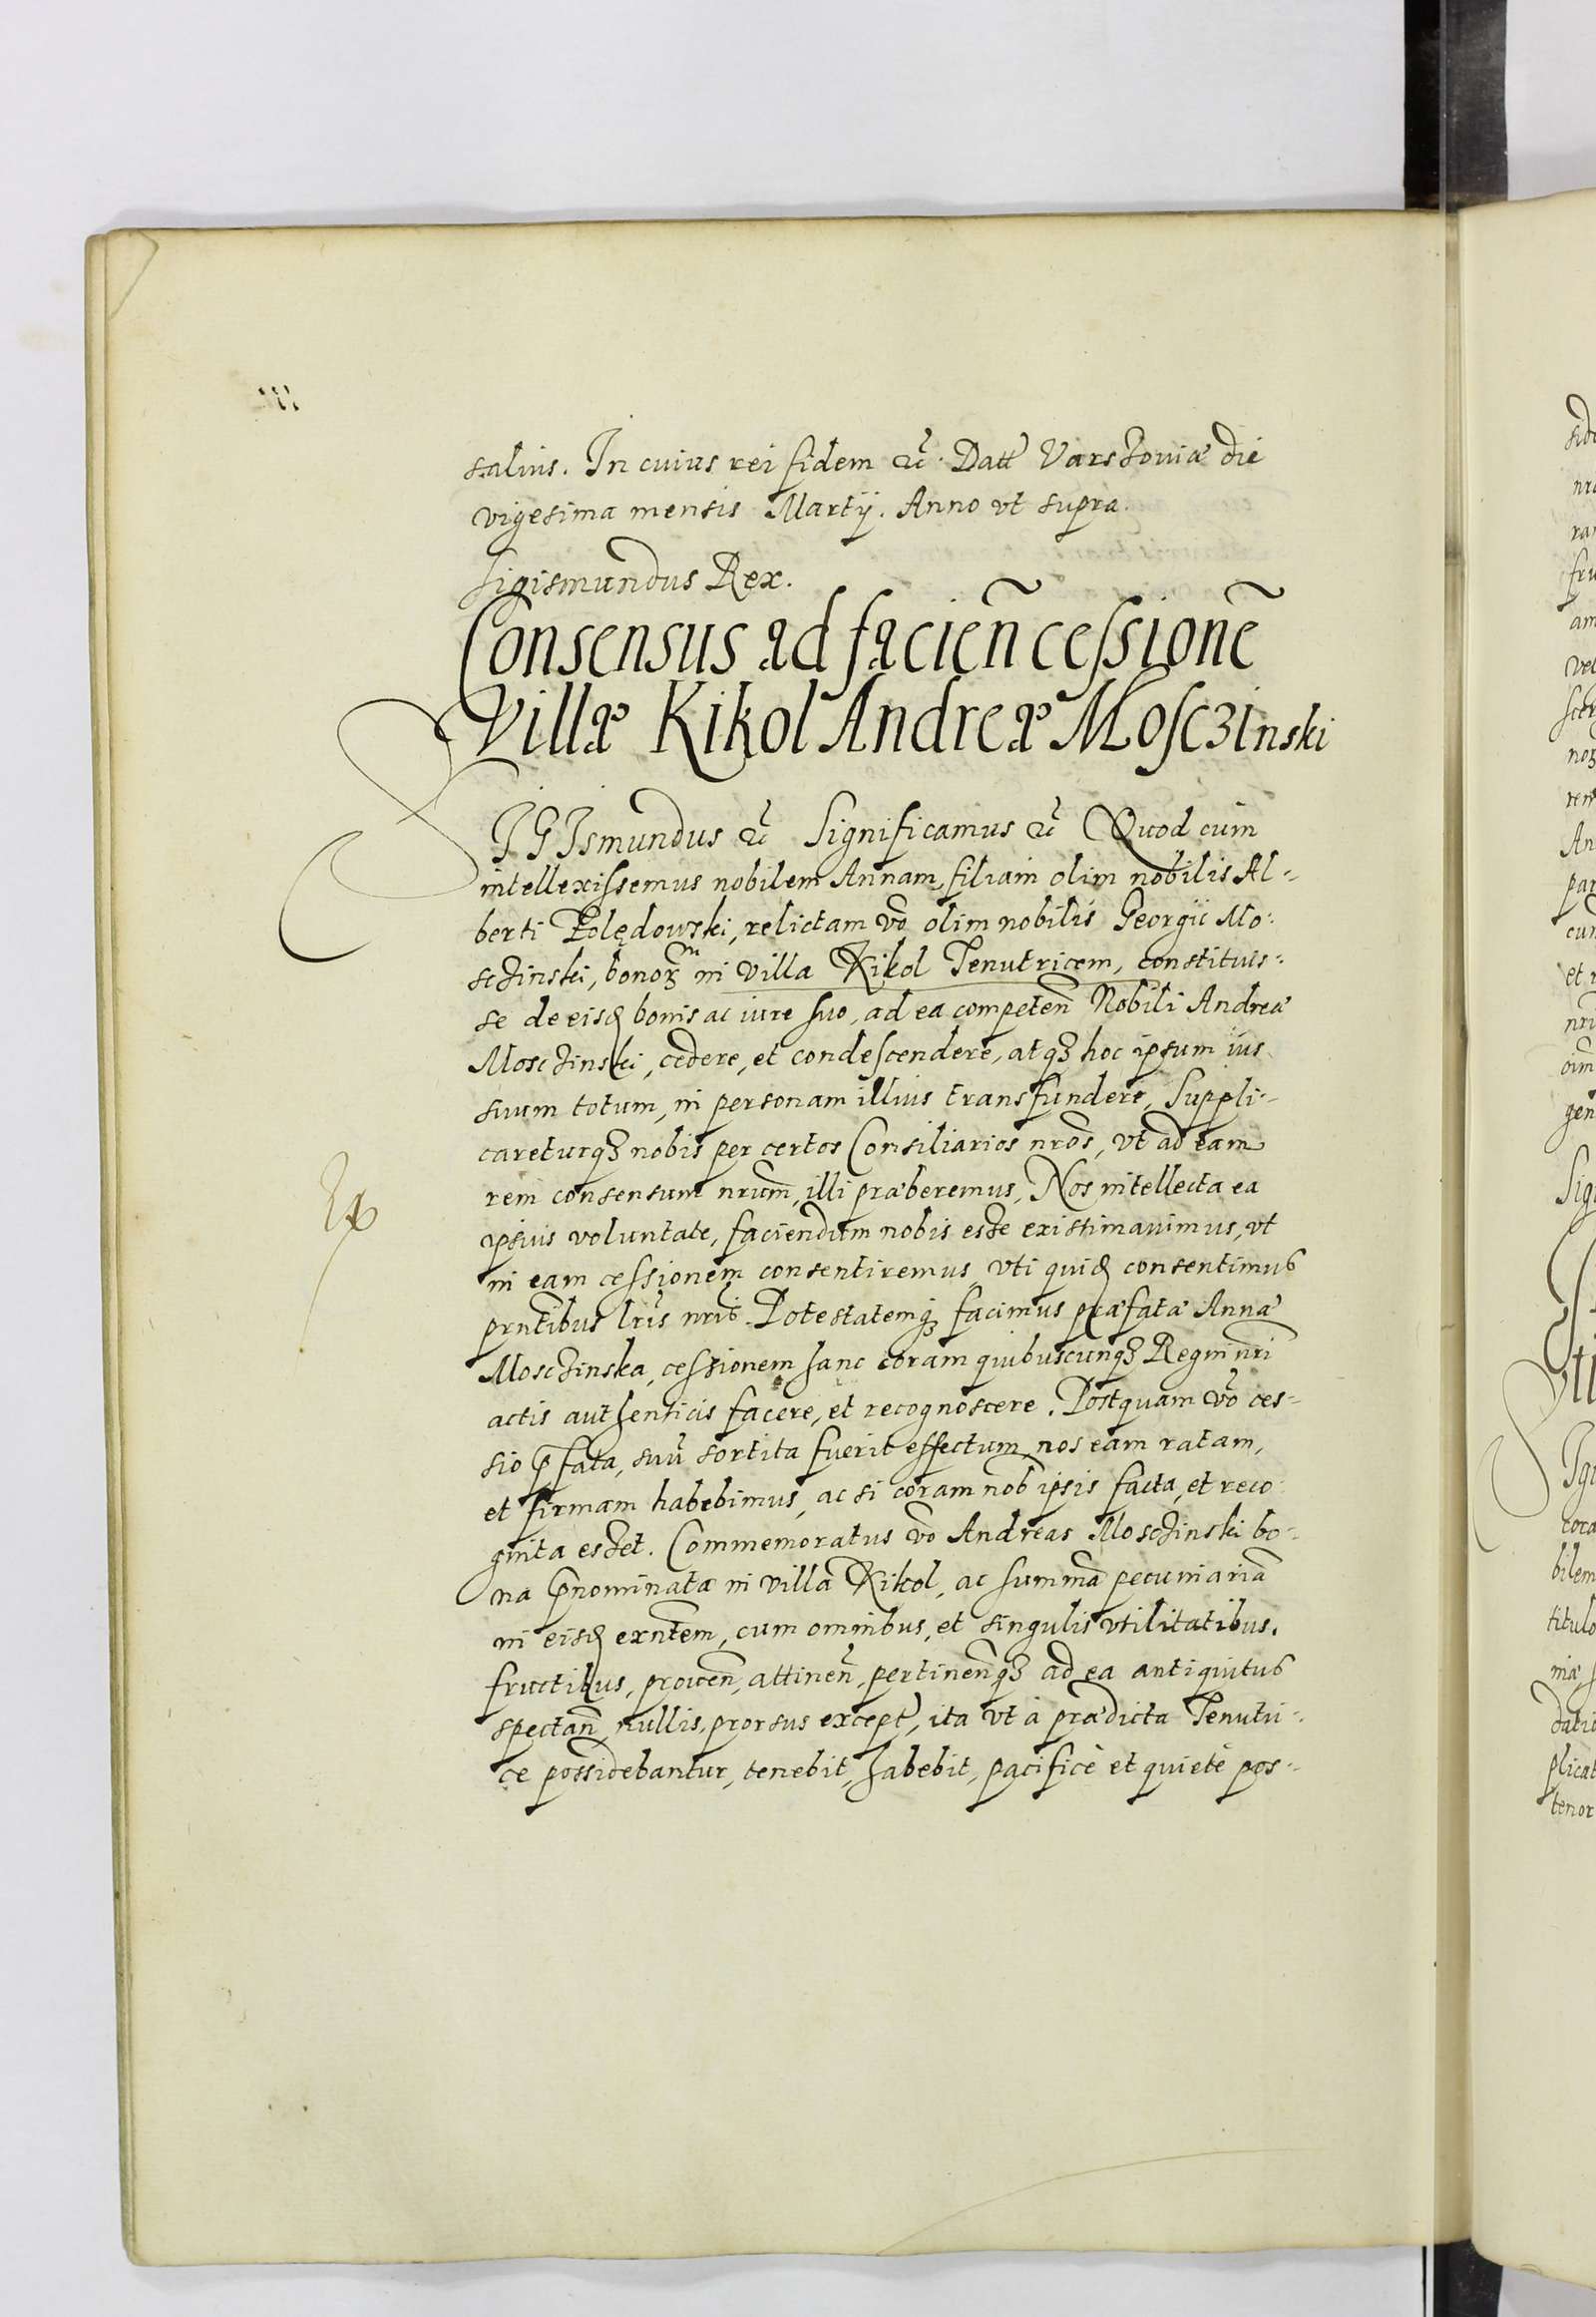 salius. In cuius rei fidem etc̃. Datt̃ Varszouiæ die
vigesima mensis Martij. Anno vt supra.
Sigismundus Rex.
Consensus ad facien̄ cessionē
Villæ Kikol Andreæ Mosczinski
SIGIsmundus etc̃ Significamus etc̃ Quod cum
intellexissemus nobilem Annam, filiam olim nobilis Al-
berti Polędowski, relictam vō olim nobilis Georgii Mo-
sczinski, bonorꝫ in villa Kikol Tenutricem, constituis-
se de eisdꝫ bonis ac iure suo, ad ea competen̄ Nobili Andreæ
Mosczinski, cedere, et condescendere, atqꝫ hoc ipsum ius
suum totum, in personam illius transfundere, Suppli-
careturqꝫ nobis per certos Consiliarios nr̄os, vt ad eam
rem consensum nr̄um, illi præberemus, Nos intellecta ea
ipsius voluntate, faciendum nobis esse existimauimus, vt
in eam cessionem consentiremus, vti quidꝫ consentimus
prn̄tibus lr̄is nr̄is. Potestatemqꝫ facimus præfatæ Annæ
Mosczinska, cessionem hanc coram quibuscunqꝫ Regni nr̄i
actis authenticis facere, et recognoscere. Postquam vō ces-
sio p̄fata, suū sortita fuerit effectum, nos eam ratam,
et firmam habebimus, ac si coram nob̄ ipsis facta, et reco-
gnita esset. Commemoratus vō Andreas Mosczinski bo-
na p̄nominata in villa Kikol, ac summā pecuniariā
in eisdꝫ exn̄tem, cum omnibus, et singulis vtilitatibus,
fructibus, prouen̄, attinen̄, pertinen̄qꝫ ad ea antiquitus
spectan̄, nullis, prorsus except̄, ita vt à prædicta Tenutri-
ce possidebantur, tenebit, habebit, pacificè et quietè pos-